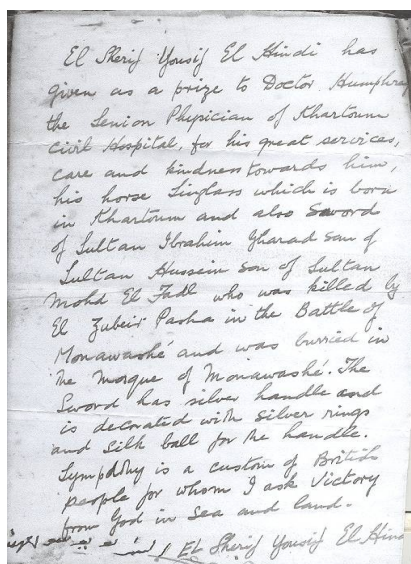 El Sherif Yousif El Hindi has
given as a prize to Doctor Humphre
the Senior Physician of Khartoum
Civil Hospital, for his great services,
care and kindness towards him,
his horse Singlass which is born
in Khartoum and also Sword
of Sultan Ibrahim Gharad son of
Sultan Hussein son of Sultan
Mohd El Fadl who was killed by
El Zubeir Pasha in the Battle of
Monawashé and was burried in
the Mosque of Monawashé. The
Sword has silver handle and
is decorated with silver rings
and silk ball for the handle.
Sympathy is a custom of British
people for whom I ask Victory
from God in sea and land.
El Sherif Yousif El Hind